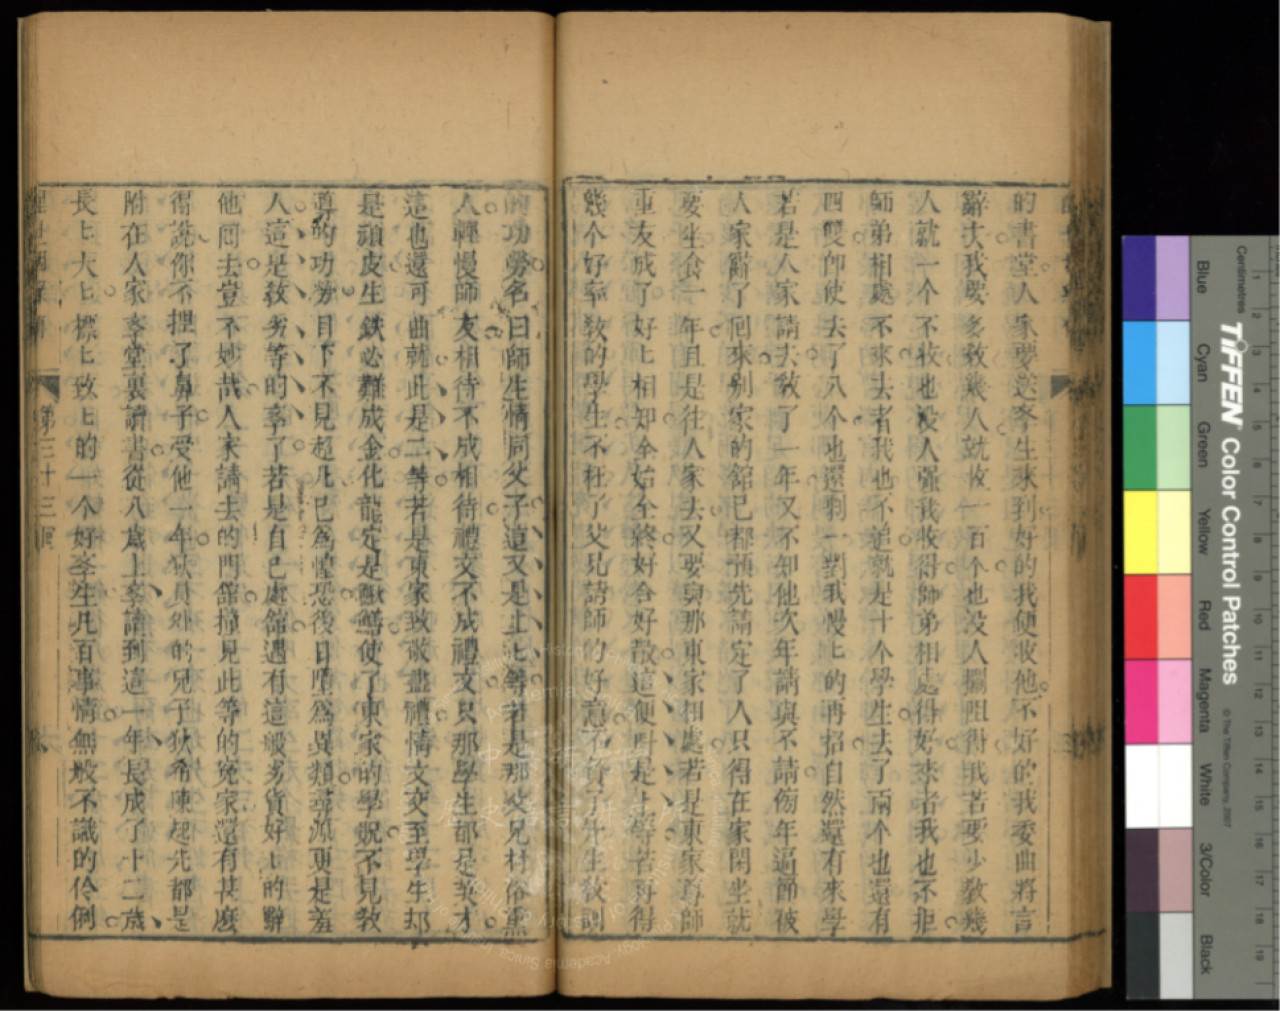 的書堂人家要送學生來到好的我便收他不好的我委曲將言
辭去我要多敎幾人就收一百个也没人攔阻得我若要少敎幾
人就一个不收也没人强我收得師弟相處得好來者我也不拒
師弟相處不來去者我也不追就是十个學生去了兩个也還有
四雙卽使去了八个也還剩一對我慢上的再招自然還有來學
若是人家請去敎了一年又不知他次年請與不請傍年逼節被
人家辭了回來别家的舘已都預先請定了人只得在家閑坐就
要坐食一年且是往人家去又要與那東家相處若是東家尊師
重友成了好上相知全始全終好合好散這便叫是上等若再得
幾个好率敎的學生不枉了父兄請師的好意不負了先生敎訓
的功勞名曰師生情同父子這又是上上等若是那父兄村俗熏
人輕慢師友相待不成相待禮文不成禮文只那學生都是英才
這也還可曲就此是二等若是東家致敬盡禮情文交至學生却
是頑皮生鉄必難成金化龍定是鰍鱔使了東家的學貺不見敎
導的功勞目下不見超凡已爲惶恐後日墮爲異類尋源更是羞
人這是敎劣等的李了若是自己處舘遇有這般劣貨好上的辭
他回去豈不妙哉人家請去的門舘撞見此等的寃家還有甚麽
得說你不捏了鼻子受他一年狄員外的兒子狄希陳起先都是
附在人家李堂裏讀書從八歲上李讀到這一年長成了十二歲
長上大上標上致上的一个好李生凡百事情無般不識的伶俐
第三十三囘